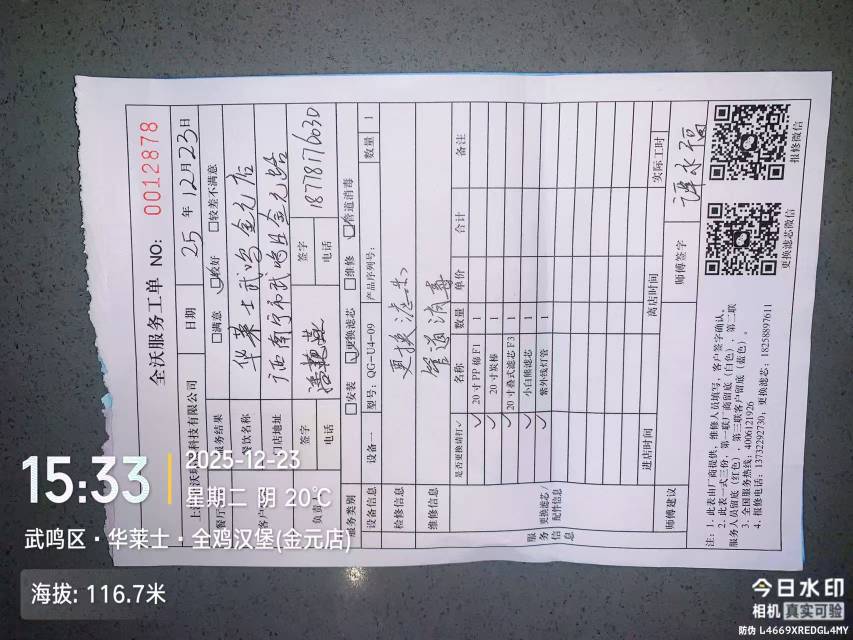 全沃服务工单 NO: 0012878
日期 25 年 12 月 23 日
服务结果 □满意 □较好 □较差不满意
餐饮名称 华莱士武鸣金元店
门店地址 广西南宁市武鸣区金元路
签字 签字
电话 电话 18778170030
服务类别 □安装 □更换滤芯 □维修 □管道消毒
设备信息 设备一 型号: QG-U4-09 产品序列号: 数量 1
检修信息 更换滤芯
维修信息 管道消毒
服务信息 更换滤芯/配件信息
是否更换请打✓ 名称 数量 单价 合计 备注
✓ 20 寸 PP 棉 F1 1
✓ 20 寸炭棒 1
✓ 20 寸叠式滤芯 F3 1
✓ 小白熊滤芯 1
✓ 紫外线灯管 1
进店时间 离店时间 实际工时
师傅建议 师傅签字
注: 1. 此表由厂商提供, 维修人员填写, 客户签字确认。
2. 此表一式三份, 第一联厂商留底(白色), 第二联
服务人员留底(红色), 第三联客户留底(蓝色)。
3. 全国服务热线: 4006121926
4. 报修电话: 13732292730; 更换滤芯: 18258897611
更换滤芯微信
报修微信
15:33
2025-12-23
星期二 阴 20℃
武鸣区·华莱士·全鸡汉堡(金元店)
海拔: 116.7米
今日水印
相机 真实可验
防伪 L4669XREDGL4MY